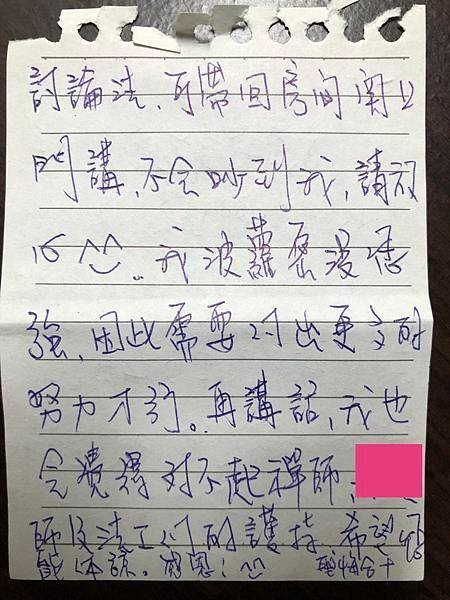 討論法,可帶回房间関上
門講,不会吵到我,請放
心^^。我波蘿蜜沒很
強,因此需要付出更多的
努力才行。再講話,我也
会覺得对不起禪師、
師及法工们的護持,希望您
能体諒。感恩!^^ 合十